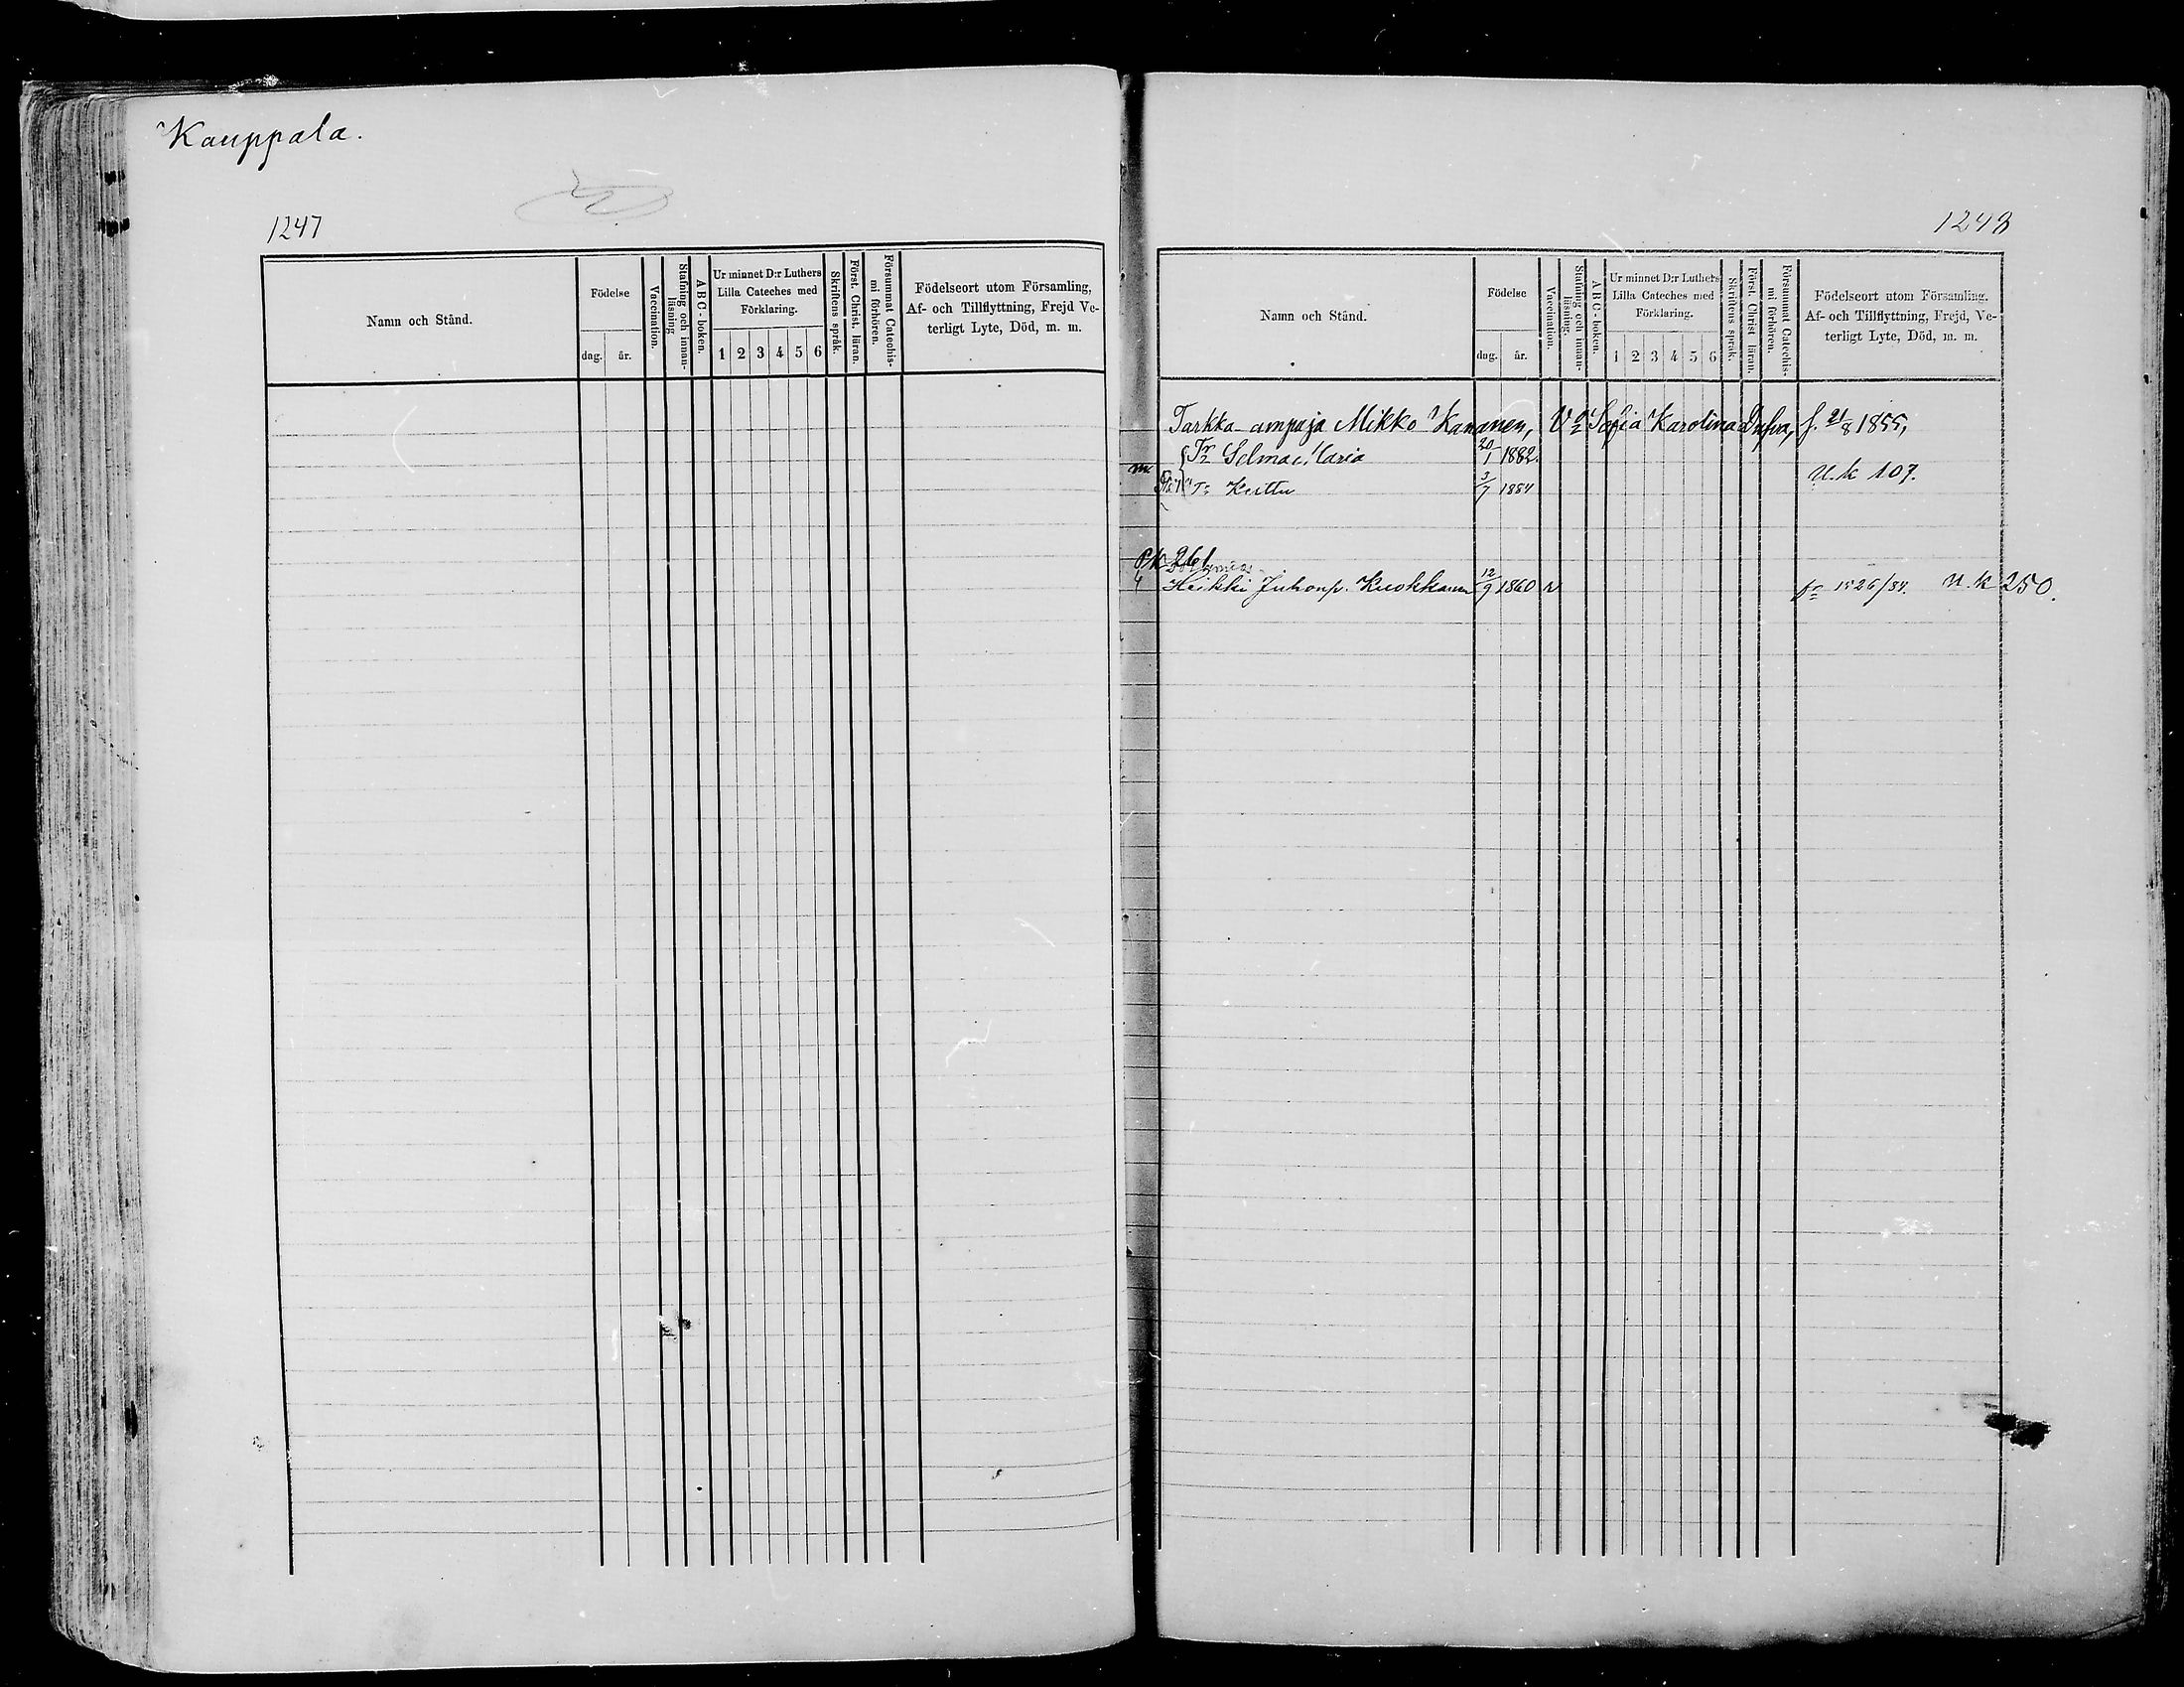 Kauppala.
1247
Namn och Stånd.
Födelse
dag.
år.
Vaccination.
Stafning och innan-
läsning
A B C - boken.
Ur minnet D:r Luthers
Lilla Cateches med
Förklaring.
1 2 3 4 5 6
Skriftens språk.
Först. Christ. läran.
Försummat Catechis-
mi förhören.
Födelseort utom Församling,
Af- och Tillflyttning, Frejd Ve-
terligt Lyte, Död, m. m.
1248
Namn och Stånd.
Födelse
dag.
år.
Vaccination.
Stafning och innan-
läsning.
A B C - boken.
Ur minnet D:r Luthers
Lilla Cateches med
Förklaring.
1 2 3 4 5 6
Skriftens språk.
Först. Christ läran.
Försummat Catechis-
mi förhören.
Födelseort utom Församling.
Af- och Tillflyttning, Frejd, Ve-
terligt Lyte, Död, m. m.
Tarkka-ampuja Mikko Kananen, Vo Sofia Karolina f. 21/8 1855,
Tr Selma Maria 20/1 1882.
Tr Keittu 3/7 1884 U.k 107.
Pk 261
Heikki Juhonp. Kuokkanen 12/9 1860 v fr 1526/84. U.k 250.